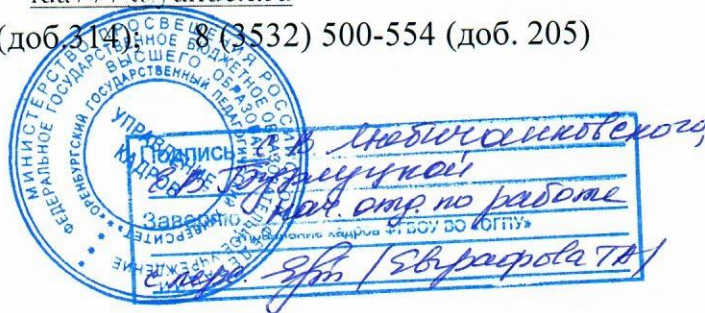 (доб.314); 8 (3532) 500-554 (доб. 205)
МИНИСТЕРСТВО ПРОСВЕЩЕНИЯ РОССИ
ФЕДЕРАЛЬНОЕ ГОСУДАРСТВЕННОЕ БЮДЖЕТНОЕ
ВЫСШЕГО ОБРАЗО
«ОРЕНБУРГСКИЙ ГОСУДАРСТВЕННЫЙ ПЕДАГОГИЧЕСКИЙ УНИВЕРСИТЕТ»
УПРАВЛЕНИЕ
КАДРОВ
Подпись С.В. Любичанковского,
Е.В. Бузулуцкой
Заверяю нач. отд по работе
кадров ФГБОУ ВО «ОГПУ»
с перс. (Евграфова ТА)